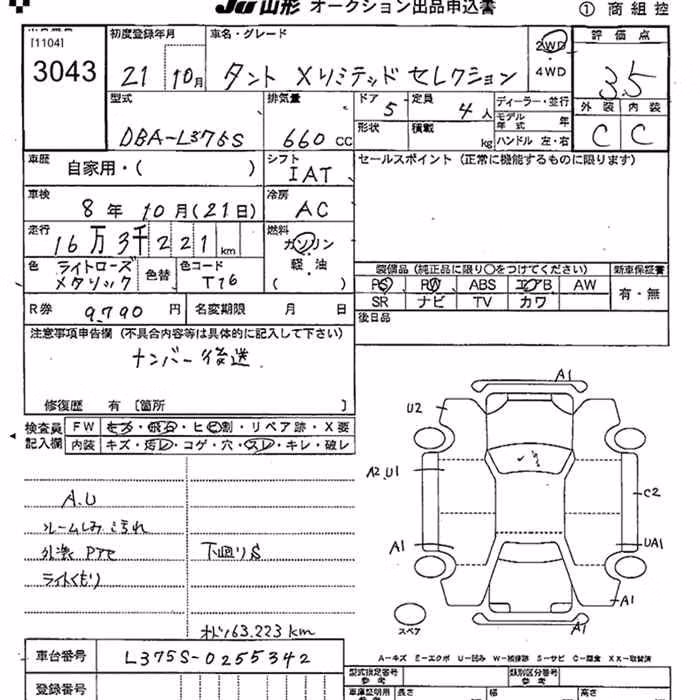 JU 山形 オークション出品申込書 ① 商組控
[1104]
3043
初度登録年月
21 10月
車名・グレード
タント Xリミテッド セレクション
2WD
・
4WD
評価点
3.5
外装 内装
C C
型式
DBA-L375S
排気量
660 CC
ドア 5
定員 4人
形状
積載 kg
ディーラー・並行
モデル年式 年
ハンドル 左・右
車歴
自家用・( )
シフト
IAT
セールスポイント (正常に機能するものに限ります)
車検
8年 10月(21日)
冷房
AC
走行
16万3千221km
燃料
ガソリン
・
軽・油
( )
色
ライトローズ
メタリック
色替
色コード
T16
装備品 (純正品に限り○をつけてください)
PS PW ABS エアB AW
SR ナビ TV カワ
新車保証書
有・無
R券 9,790 円
名変期限 月 日
後日品
注意事項申告欄 (不具合内容等は具体的に記入して下さい)
ナンバー後送
修復歴 有 [箇所 ]
検査員
記入欄
FW キズ・飛石・ヒビ割・リペア跡・X要
内装 キズ・汚レ・コゲ・穴・スレ・キレ・破レ
A.U
ルームしみ よごれ
外装 PTセ
下廻りS
ライトくもり
オド163.223km
A1
U2
A2.U1
C2
A1
UA1
A1
A1
スペア
A-キズ E-エクボ U-凹み W-補修跡 S-サビ C-腐食 XX-取替済
車台番号 L375S-0255342
登録番号
型式指定番号
参考
類別区分番号
参考
車庫証明用
参考
長さ
幅
高さ